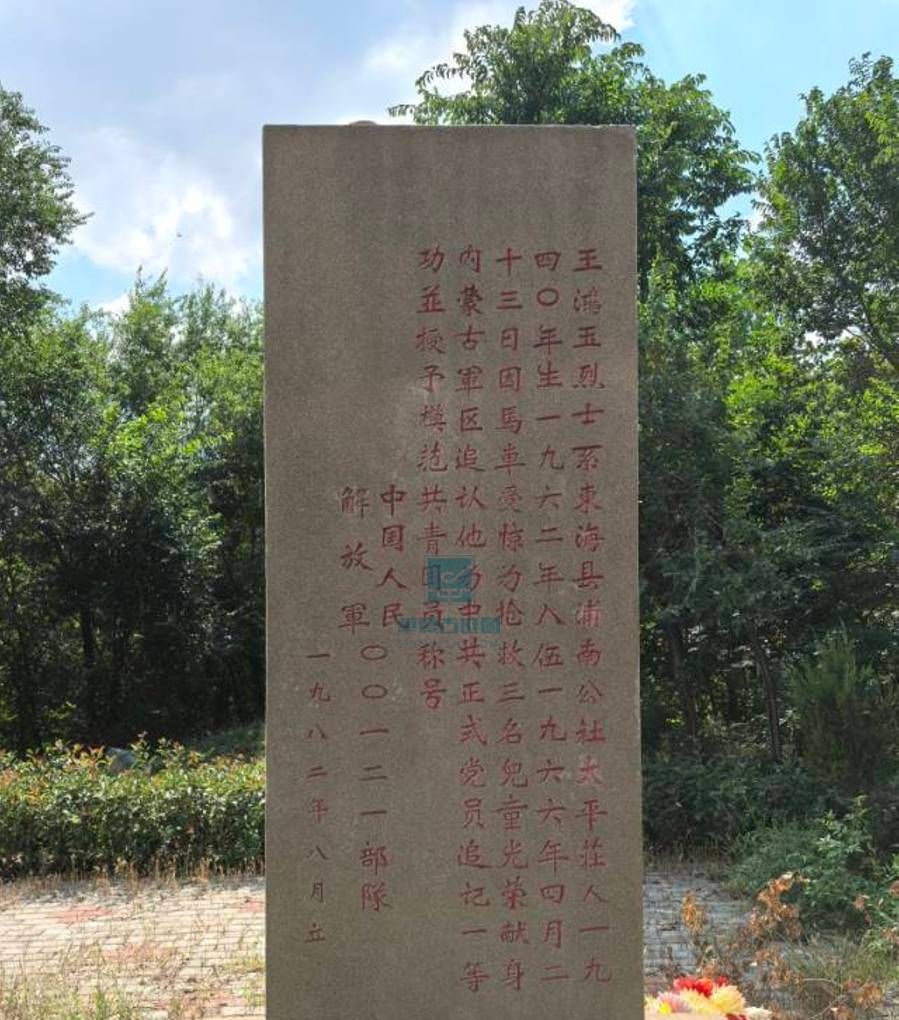 王鴻玉烈士系東海县浦南公社太平莊人一九
四〇年生一九六二年入伍一九六六年四月二
十三日因馬車受惊为抢救三名兒童光荣献身
内蒙古軍区追认他为中共正式党员追记一等
功並授予模范共青团员称号
中国人民
解放軍
〇〇一二一部隊
一九八二年八月立